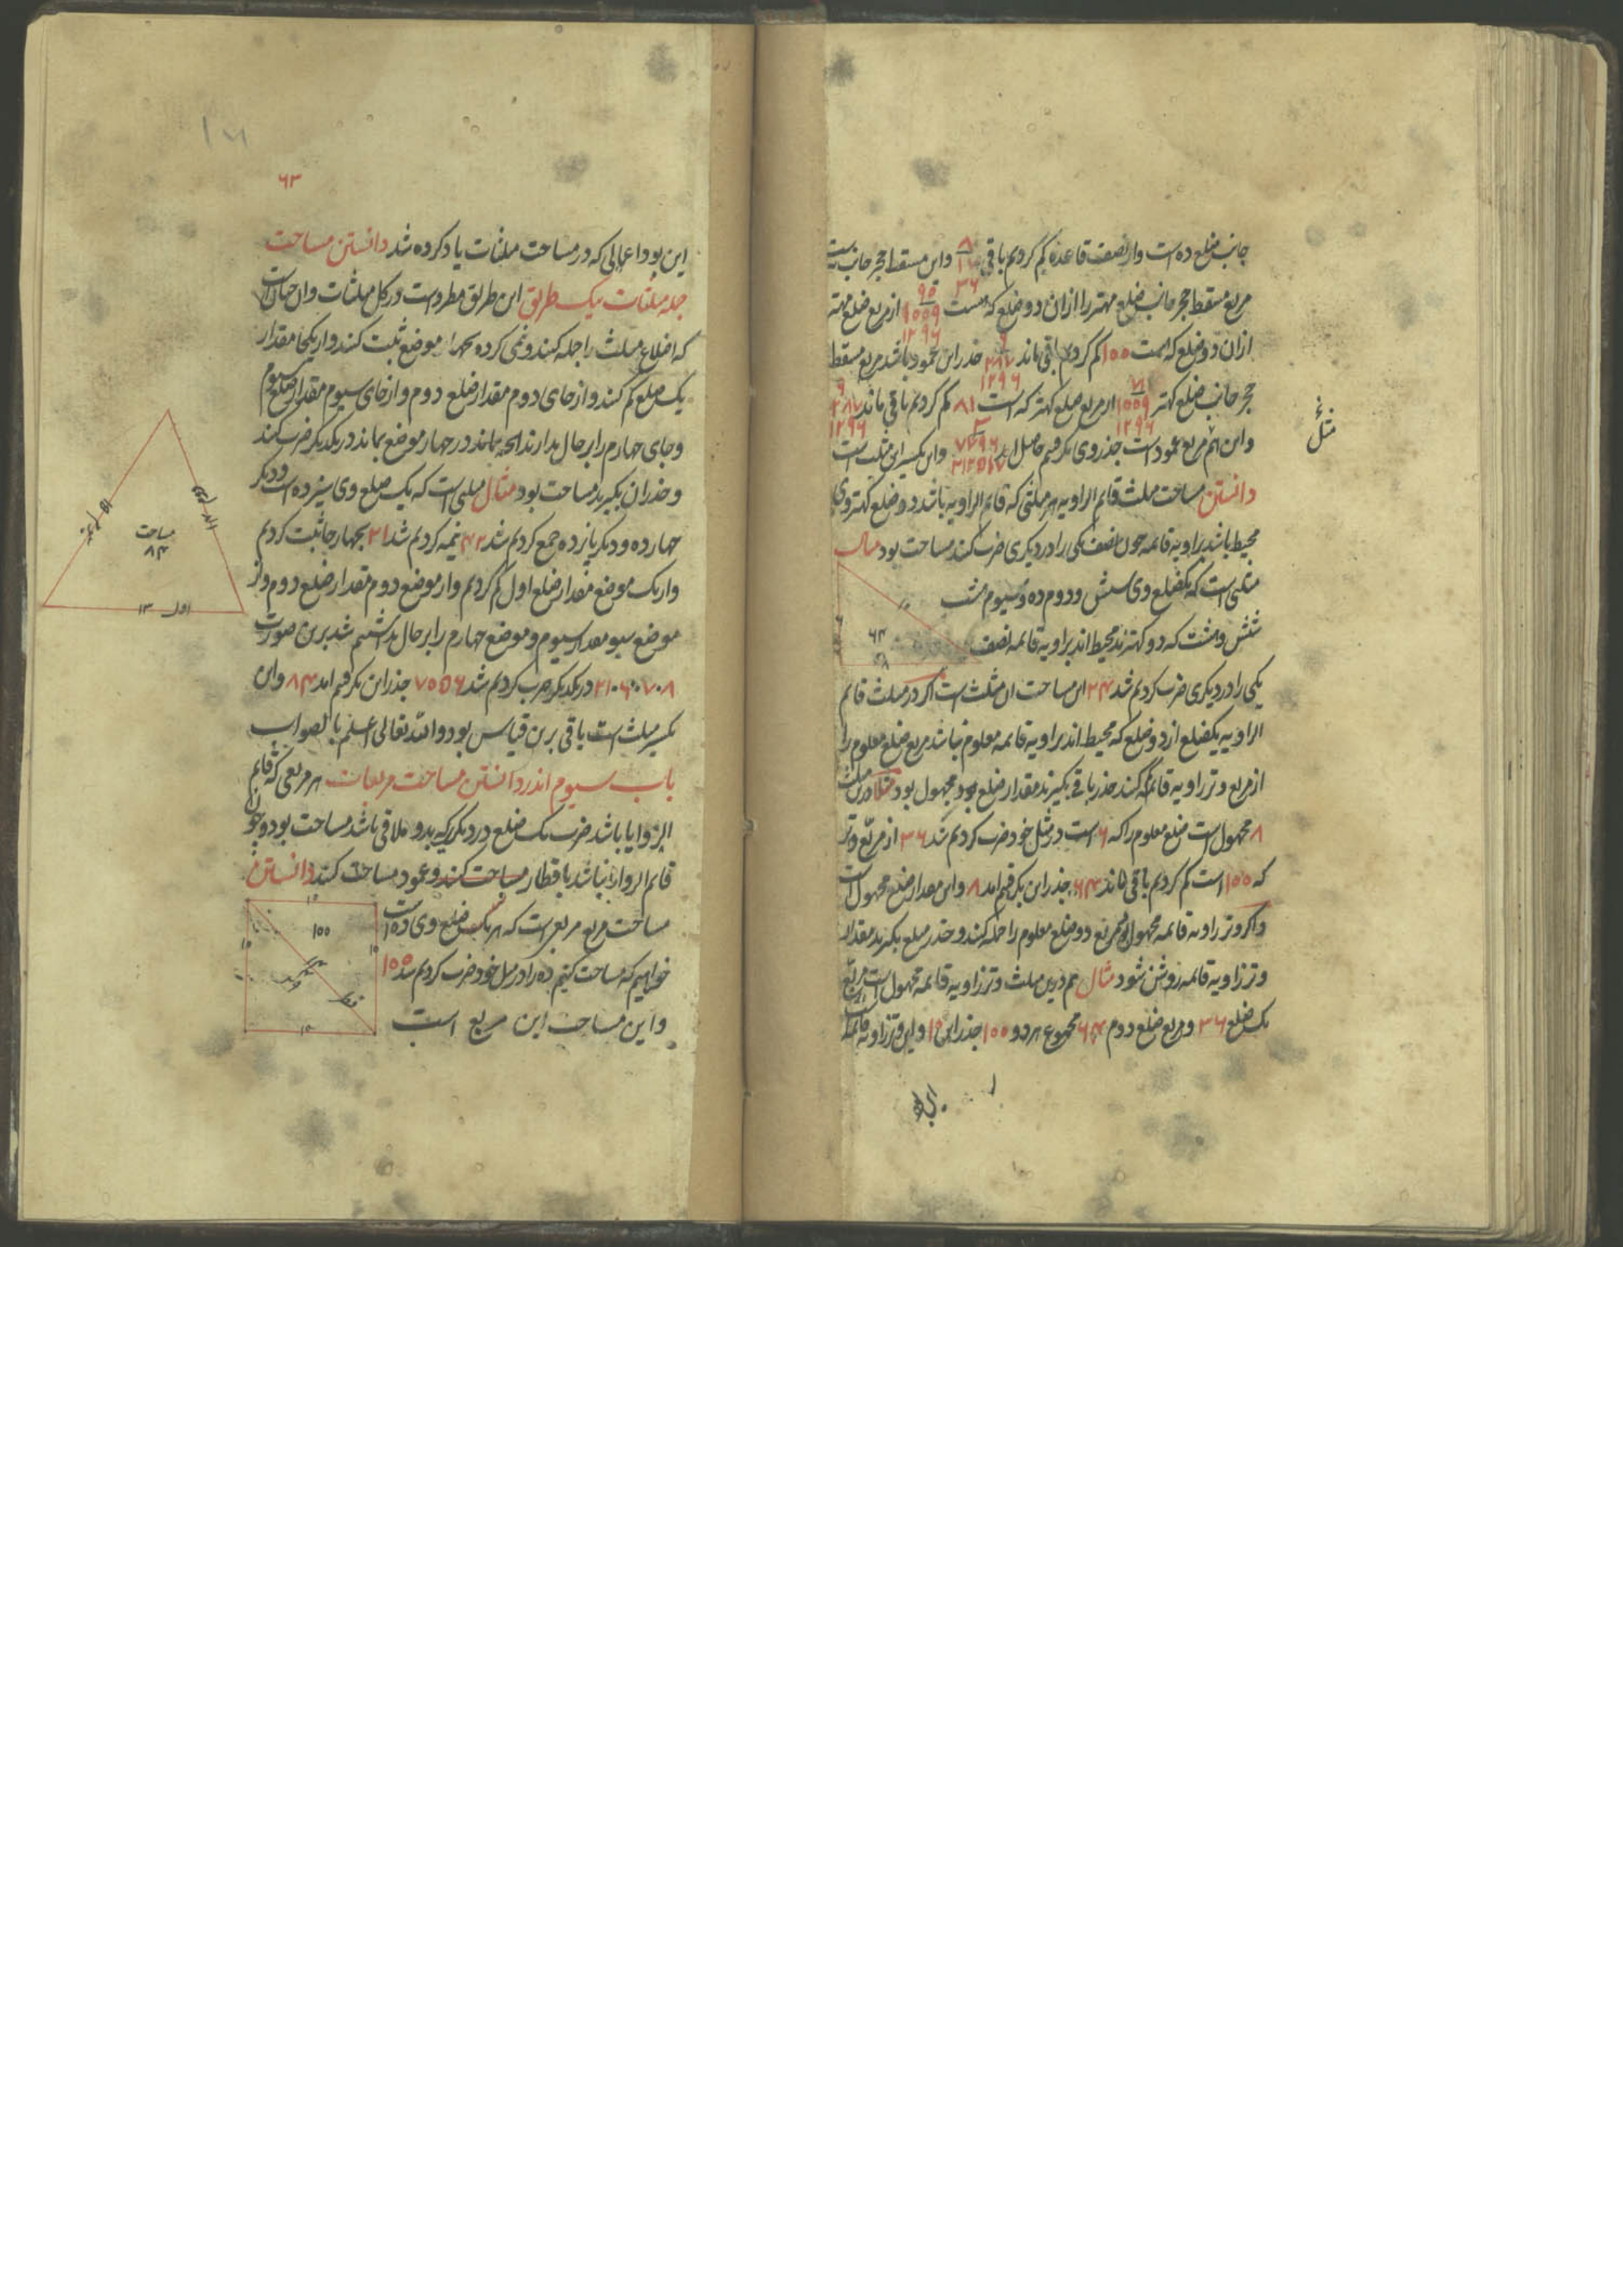 جانب ضلع ده است واز نصف قاعده کم کردیم باقی ۸ ۱۶ ۳۶ واین مسقط حجر جانب
مربع مسقط حجر جانب ضلع مهتر را ازان دو ضلع که هست ۹۵ ۱۵۵۹ ۱۲۹۶ از مربع ضلع مهتر
ازان دو ضلع که هست ۱۵۵ کم کردیم باقی ماند ۲۸۷ ۱۲۹۶ جذر این عمود باشد مربع مسقط
حجر جانب ضلع کهتر ۱۵۵۹ ۱۲۹۶ از مربع ضلع کهتر که است ۸۱ کم کردیم باقی ماند ۲۸۷ ۱۲۹۶
واین هم مربع عمود است جذر وی بکرفتیم حاصل واین تکسیر این مثلث است
دانستن مساحت مثلث قائم الزاویه هر مثلثی که قائم الزاویه باشد دو ضلع کهتر وی
محیط باشد بزاویه قائمه چون نصف یکی را در دیکری ضرب کنند مساحت بود مثال
مثلثی است که یکضلع وی شش ودوم ده وسیوم هشت
شش وهشت که دو کهترند محیط اند بزاویه قائمه نصف
یکی را در دیکری ضرب کردیم شد ۲۴ این مساحت ان مثلث است اکر در مثلث قائم
الزاویه یکضلع از دو ضلع که محیط اند بزاویه قائمه معلوم نباشد مربع ضلع معلوم را
از مربع وتر زاویه قائمه کم کنند جذر باقی بکیرند مقدار ضلع مجهول بود مثلا درین مثلث
۸ مجهول است ضلع معلوم را که ۶ است در مثل خود ضرب کردیم شد ۳۶ از مربع وتر
که ۱۵۵ است کم کردیم باقی ماند ۶۴ جذر این بکرفتیم امد ۸ واین مقدار ضلع مجهول است
واکر وتر زاویه قائمه مجهول بود مربع دو ضلع معلوم را جمله کنند وجذر مبلغ بکیرند مقدار
وتر زاویه قائمه روشن شود مثال هم درین مثلث وتر زاویه قائمه مجهول است مربع
یک ضلع ۳۶ ومربع ضلع دوم ۶۴ مجموع هر دو ۱۵۵ جذر این واین وتر زاویه قائمه
۶۴
۶
۸
۶۳
این بود اعمالی که در مساحت مثلثات یاد کرده شد دانستن مساحت
جمله مثلثات بیک طریق این طریق مطرد است در کل مثلثات وان چنان است
که اضلاع مثلث را جمله کنند ونیمی کرده بچهار موضع ثبت کنند واز یکجا مقدار
یک ضلع کم کنند واز جای دوم مقدار ضلع دوم واز جای سیوم مقدار ضلع سیوم
وجای چهارم را بر حال بدارند انچه بماند در چهار موضع بماند در یکدیکر ضرب کنند
وجذر ان بکیرند مساحت بود مثال مثلثی است که یک ضلع وی سیزده است ودیکر
چهارده ودیکر پانزده جمع کردیم شد ۴۲ نیمه کردیم شد ۲۱ بچهار جا ثبت کردیم
واز یک موضع مقدار ضلع اول کم کردیم واز موضع دوم مقدار ضلع دوم واز
موضع سیوم مقدار سیوم وموضع چهارم را بر حال بداشتیم شد برین صورت
۸۰۷۰۶۰۲۱ در یکدیکر ضرب کردیم شد ۷۰۵۶ جذر این بکرفتیم امد ۸۴ واین
تکسیر مثلث است باقی برین قیاس بود والله تعالی اعلم بالصواب
باب سیوم اندر دانستن مساحت مربعات هر مربعی که قائم
الزوایا باشد ضرب یک ضلع در دیکر که بدو ملاقی باشد مساحت بود وچون
قائم الزوایا نباشد باقطار مساحت کنند وعمود مساحت کنند دانستن
مساحت مربع مربعی است که هر یک ضلع وی ده است
خواهیم که مساحت کنیم ده را در مثل خود ضرب کردیم شد ۱۵۵
واین مساحت این مربع است
مساحت
۸۴
اول ۱۳
۱۵۵
قطر
۱۰